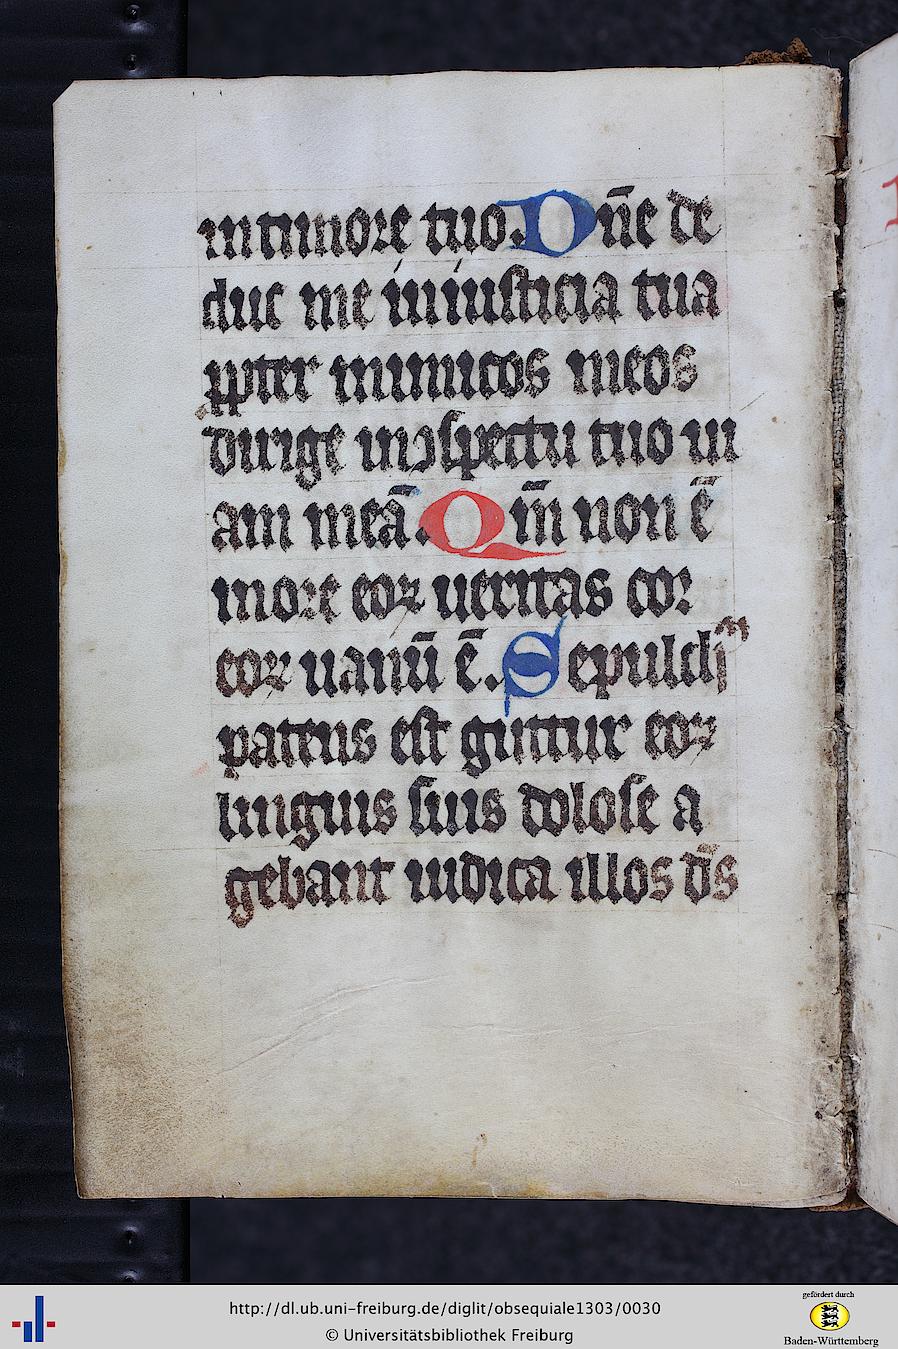 in timore tuo. Dn̄e de
duc me in iusticia tua
ꝓpter inimicos meos
dirige in ꝯspectu tuo ui
am meā. Qm̄ non ē
in ore eoꝝ ueritas cor
eoꝝ uanū ē. Sepulchꝝ
patens est guttur eoꝝ
linguis suis dolose a
gebant iudica illos ds̄
http://dl.ub.uni-freiburg.de/diglit/obsequiale1303/0030
© Universitätsbibliothek Freiburg
gefördert durch
Baden-Württemberg